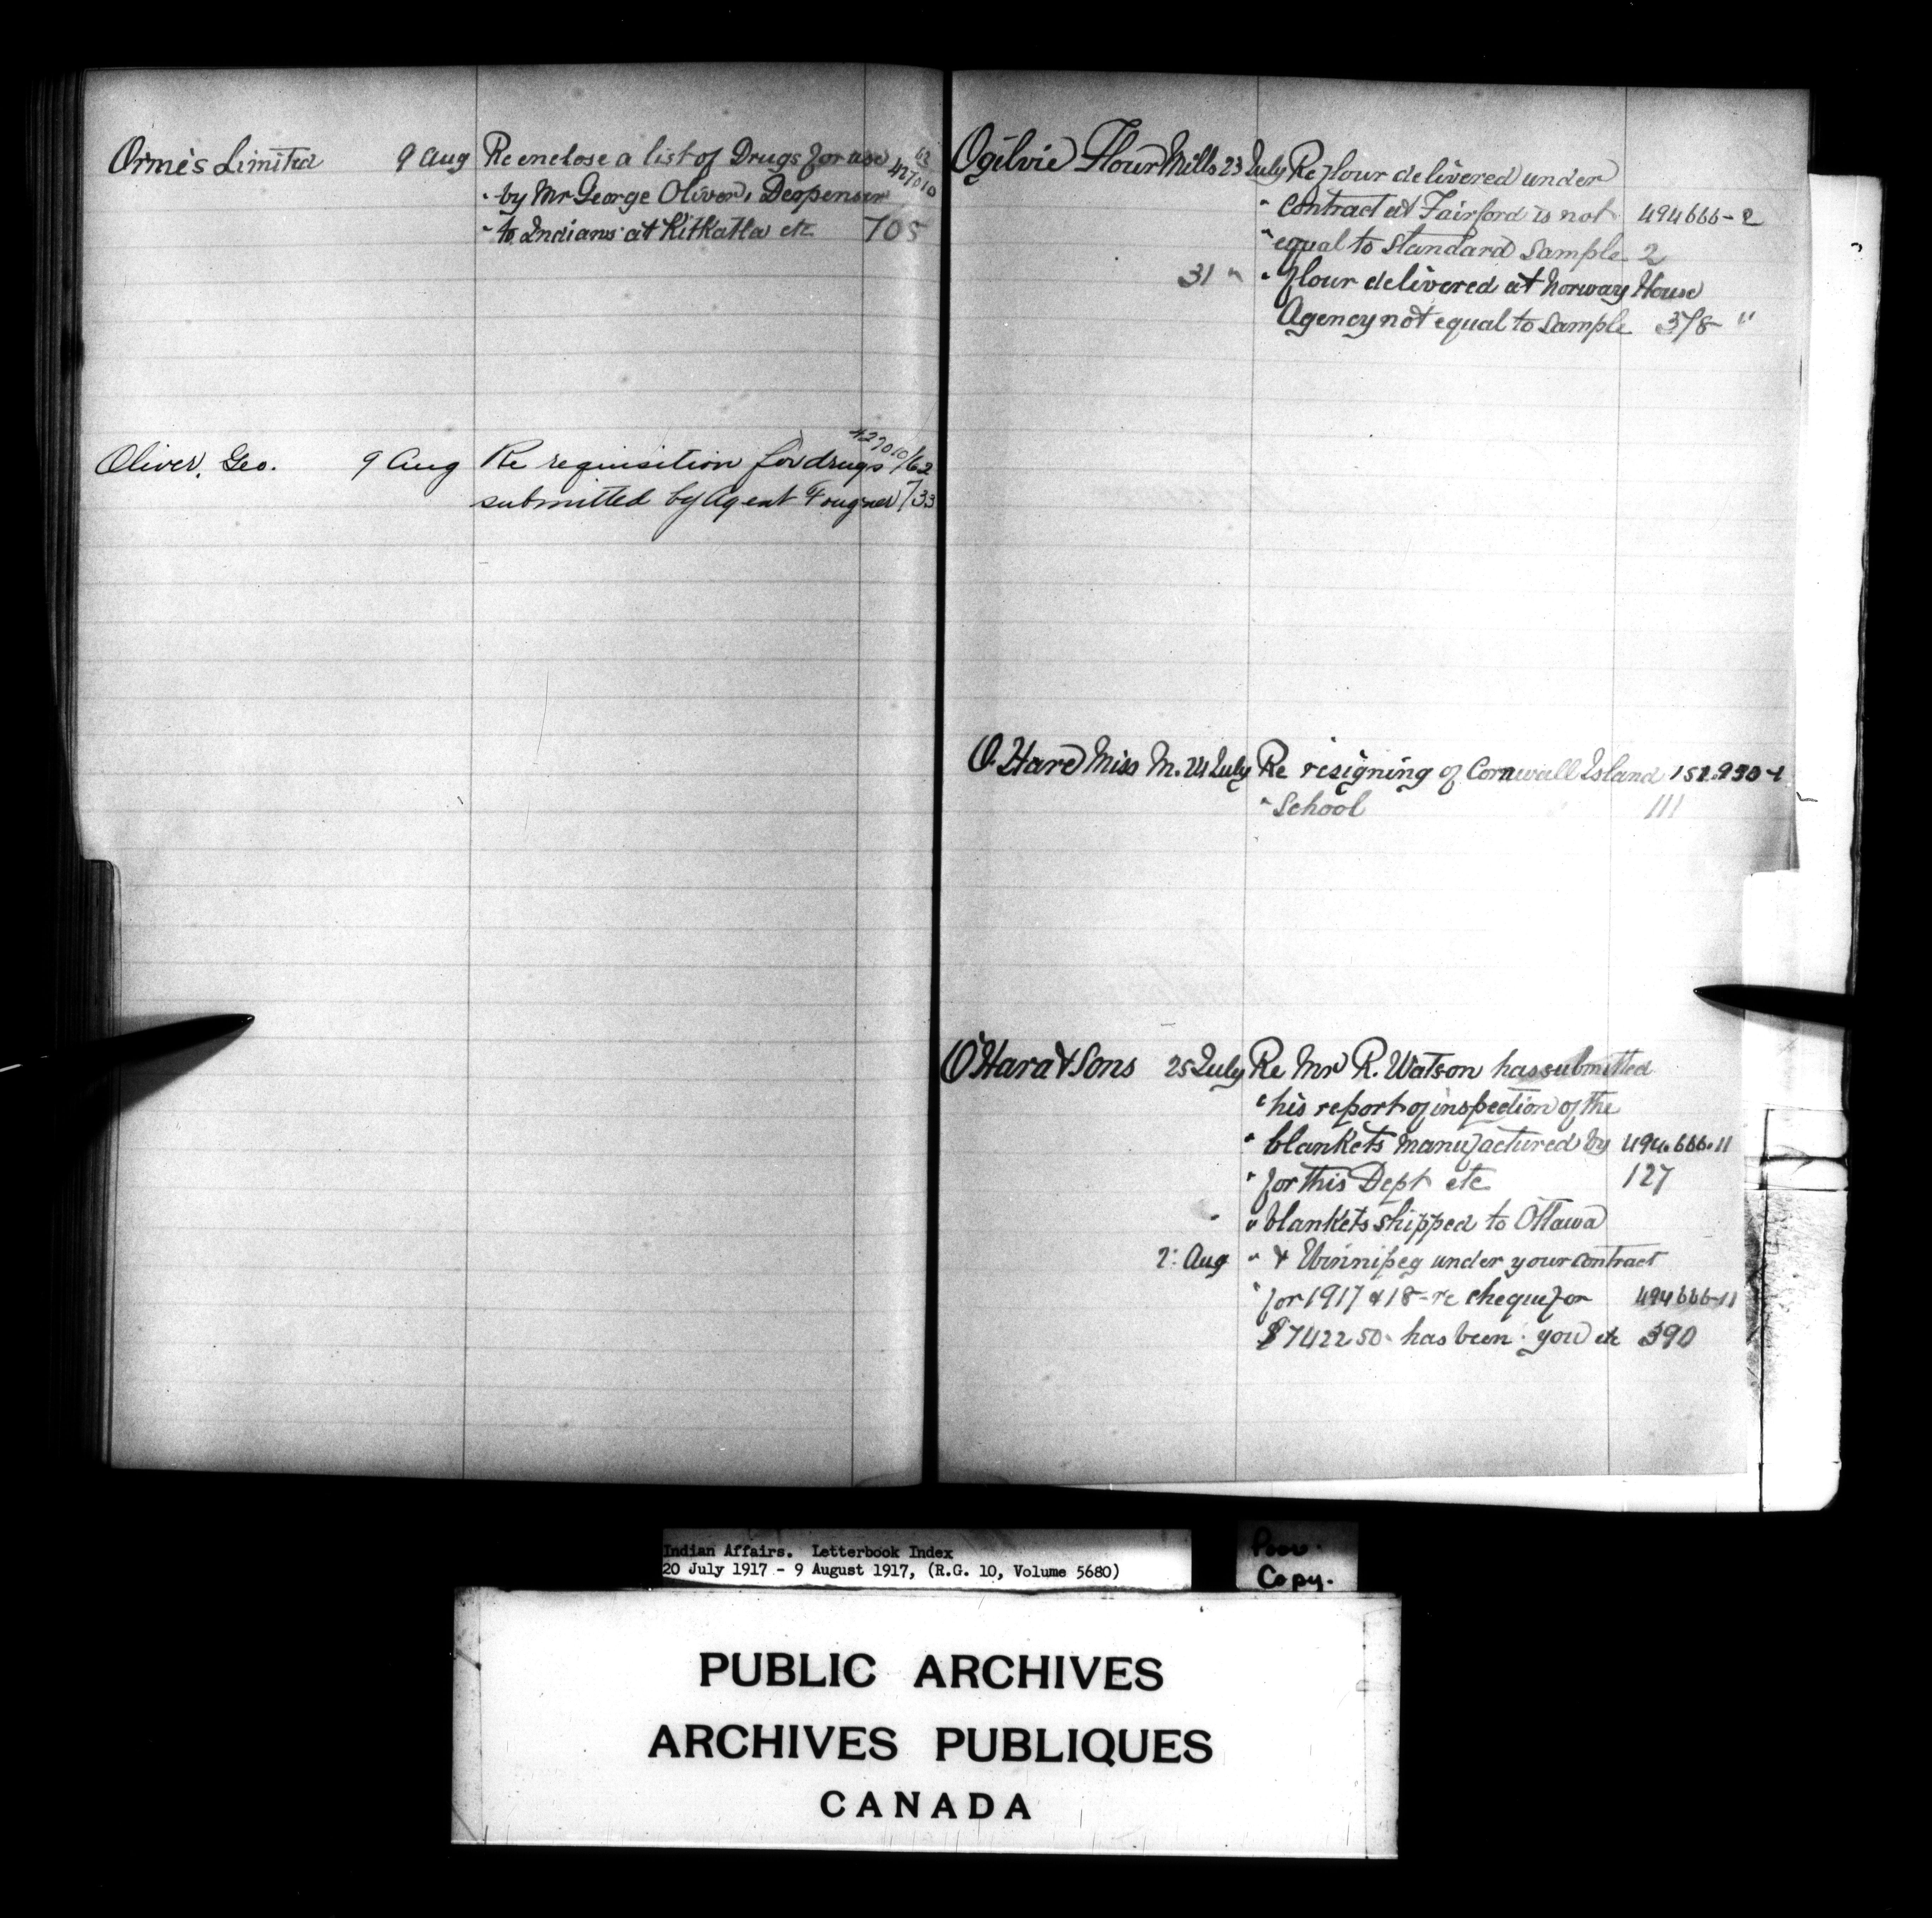 Orme's Limited 9 Aug Re enclose a list of Drugs for use 427010 62
" by Mr George Oliver, Despenser
" to Indians at Kitkatla etc 705
Oliver, Geo. 9 Aug Re requisition for drugs 427010/62
submitted by Agent Fougner 733
Ogilvie Flour Mills 23 July Re flour delivered under
" Contract at Fairford is not 494666-2
" equal to Standard Sample 2
31 " " flour delivered at Norway House
Agency not equal to Sample 378 "
O'Hare Miss M. 24 July Re resigning of Cornwall Island 152.930-1
" School 111
O'Hara & Sons 25 July Re Mr R. Watson has submitted
" his report of inspection of the
" blankets manufactured by 494.666.11
" for this Dept etc 127
" blankets shipped to Ottawa
2 Aug " & Winnipeg under your contract
" for 1917 & 18 - re cheque for 494666-11
$7422 50 has been you etc 390
Indian Affairs. Letterbook Index
20 July 1917 - 9 August 1917, (R.G. 10, Volume 5680)
Poor.
Copy.
PUBLIC ARCHIVES
ARCHIVES PUBLIQUES
CANADA